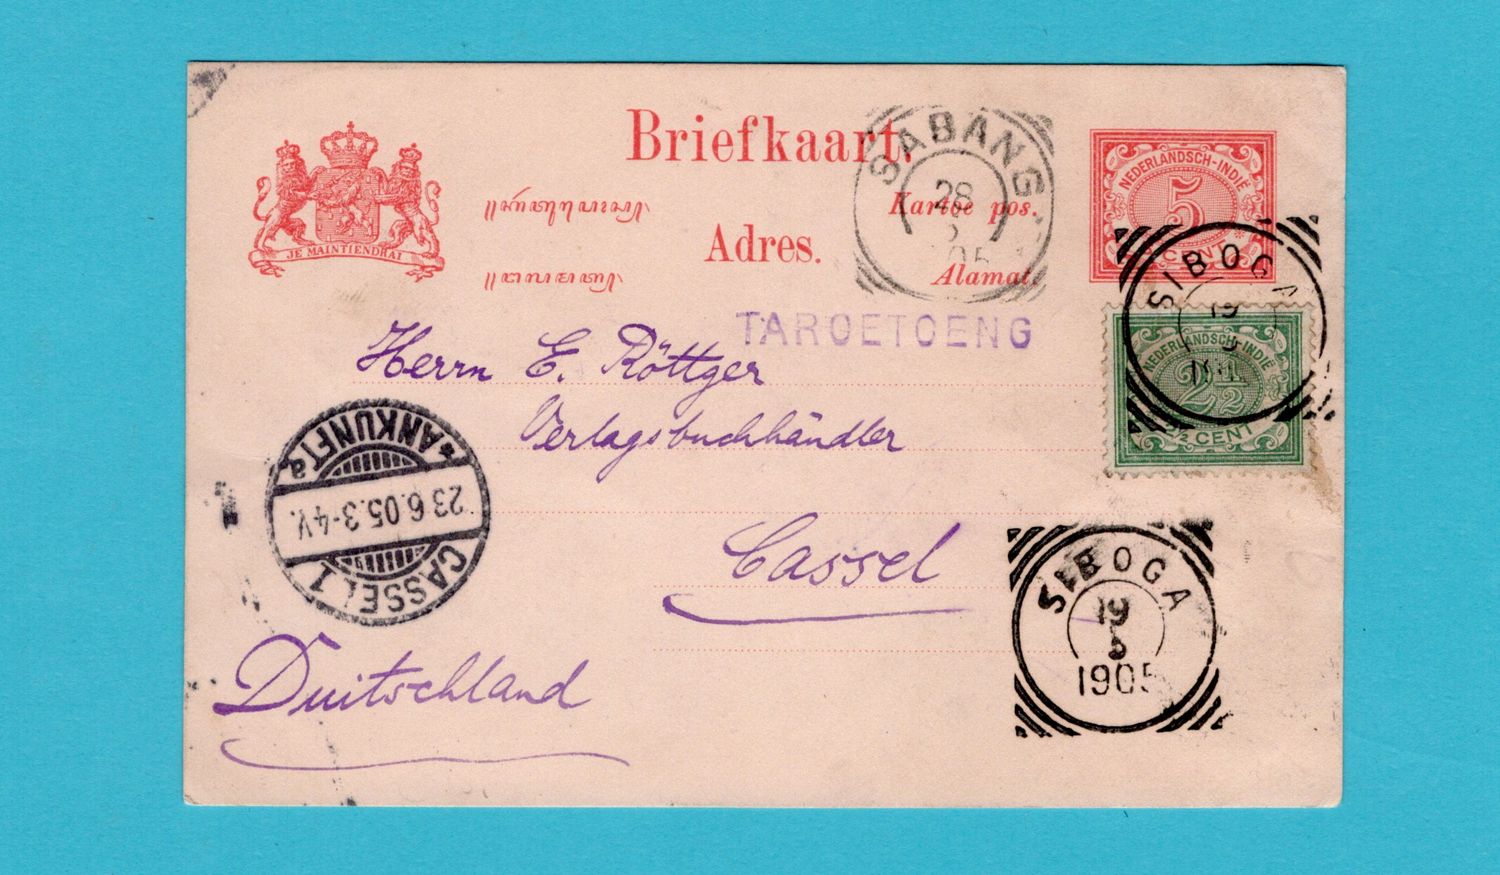 Briefkaart.
Kartoe pos.
Adres.
Alamat.
JE MAINTIENDRAI
NEDERLANDSCH-INDIË
5
CENT
SABANG
28
05
TAROETOENG
SIBOGA
19
5
NEDERLANDSCH-INDIE
2½
2½ CENT
Herrn E. Röttger
Verlagsbuchhändler
Cassel
Duitschland
ANKUNFT
23.6.05.3-4V.
CASSEL 1
a a
SIBOGA
19
5
1905